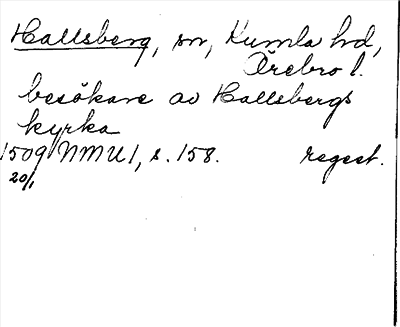 Hallsberg, sn, Kumla hd,
Örebro l.
besökare av Hallsbergs
kyrka
1509 NMU1, s. 158. regest.
20/1